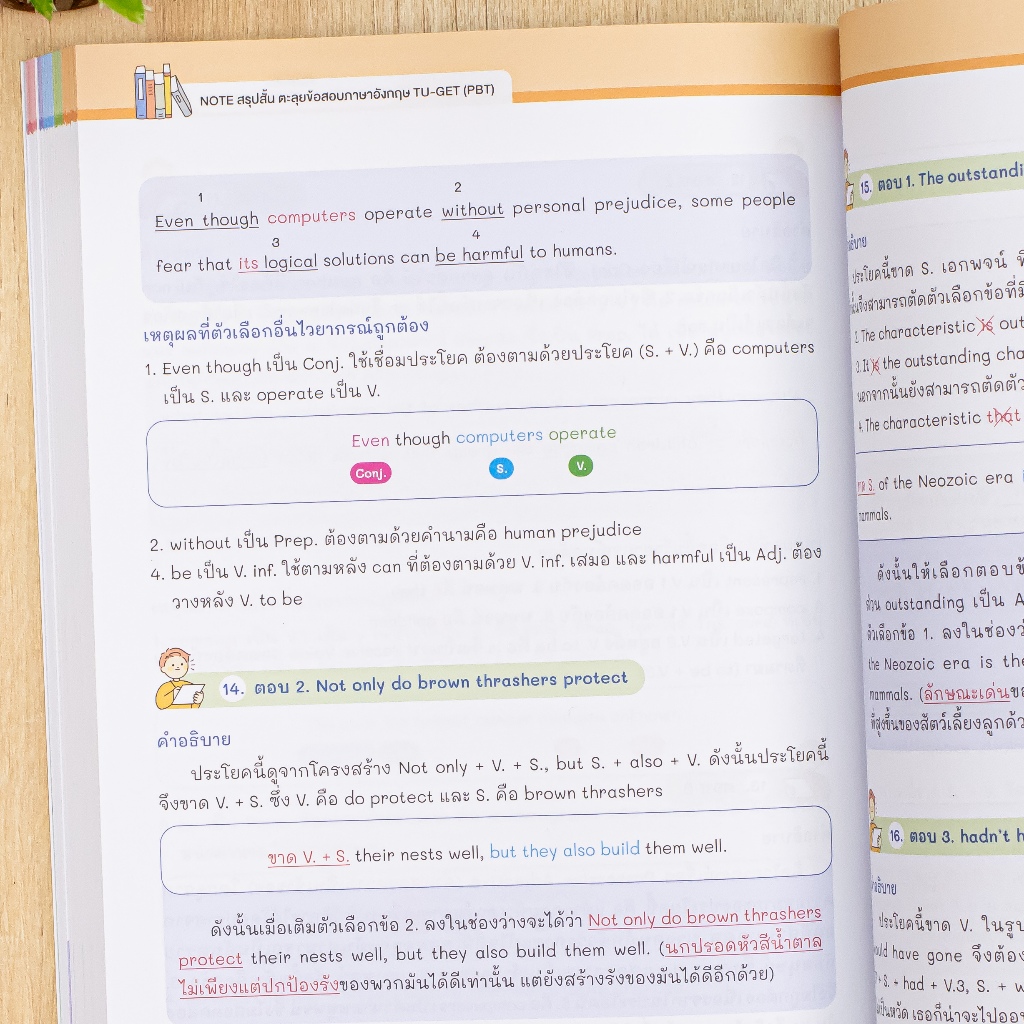 NOTE สรุปสั้น ตะลุยข้อสอบภาษาอังกฤษ TU-GET (PBT)
1 2
Even though computers operate without personal prejudice, some people
3 4
fear that its logical solutions can be harmful to humans.
เหตุผลที่ตัวเลือกอื่นไวยากรณ์ถูกต้อง
1. Even though เป็น Conj. ใช้เชื่อมประโยค ต้องตามด้วยประโยค (S. + V.) คือ computers
เป็น S. และ operate เป็น V.
Even though computers operate
Conj. S. V.
2. without เป็น Prep. ต้องตามด้วยคำนามคือ human prejudice
4. be เป็น V. inf. ใช้ตามหลัง can ที่ต้องตามด้วย V. inf. เสมอ และ harmful เป็น Adj. ต้อง
วางหลัง V. to be
14. ตอบ 2. Not only do brown thrashers protect
คำอธิบาย
ประโยคนี้ดูจากโครงสร้าง Not only + V. + S., but S. + also + V. ดังนั้นประโยคนี้
จึงขาด V. + S. ซึ่ง V. คือ do protect และ S. คือ brown thrashers
ขาด V. + S. their nests well, but they also build them well.
ดังนั้นเมื่อเติมตัวเลือกข้อ 2. ลงในช่องว่างจะได้ว่า Not only do brown thrashers
protect their nests well, but they also build them well. (นกปรอดหัวสีน้ำตาล
ไม่เพียงแต่ปกป้องรังของพวกมันได้ดีเท่านั้น แต่ยังสร้างรังของมันได้ดีอีกด้วย)
15. ตอบ 1. The outstandi
ประโยคนี้ขาด S. เอกพจน์
จึงสามารถตัดตัวเลือกข้อที่
2. The characteristic is out
3. It is the outstanding cha
นอกจากนั้นยังสามารถตัดตัว
4. The characteristic that
S. of the Neozoic era
mammals.
ดังนั้นให้เลือกตอบข้
ส่วน outstanding เป็น A
ตัวเลือกข้อ 1. ลงในช่องว่
the Neozoic era is the
mammals. (ลักษณะเด่นข
ที่สูงขึ้นของสัตว์เลี้ยงลูกด้ว
16. ตอบ 3. hadn't h
ประโยคนี้ขาด V. ในรูป
ould have gone จึงต้อง
+ S. + had + V.3, S. + w
เป็นหวัด เธอก็น่าจะไปออก